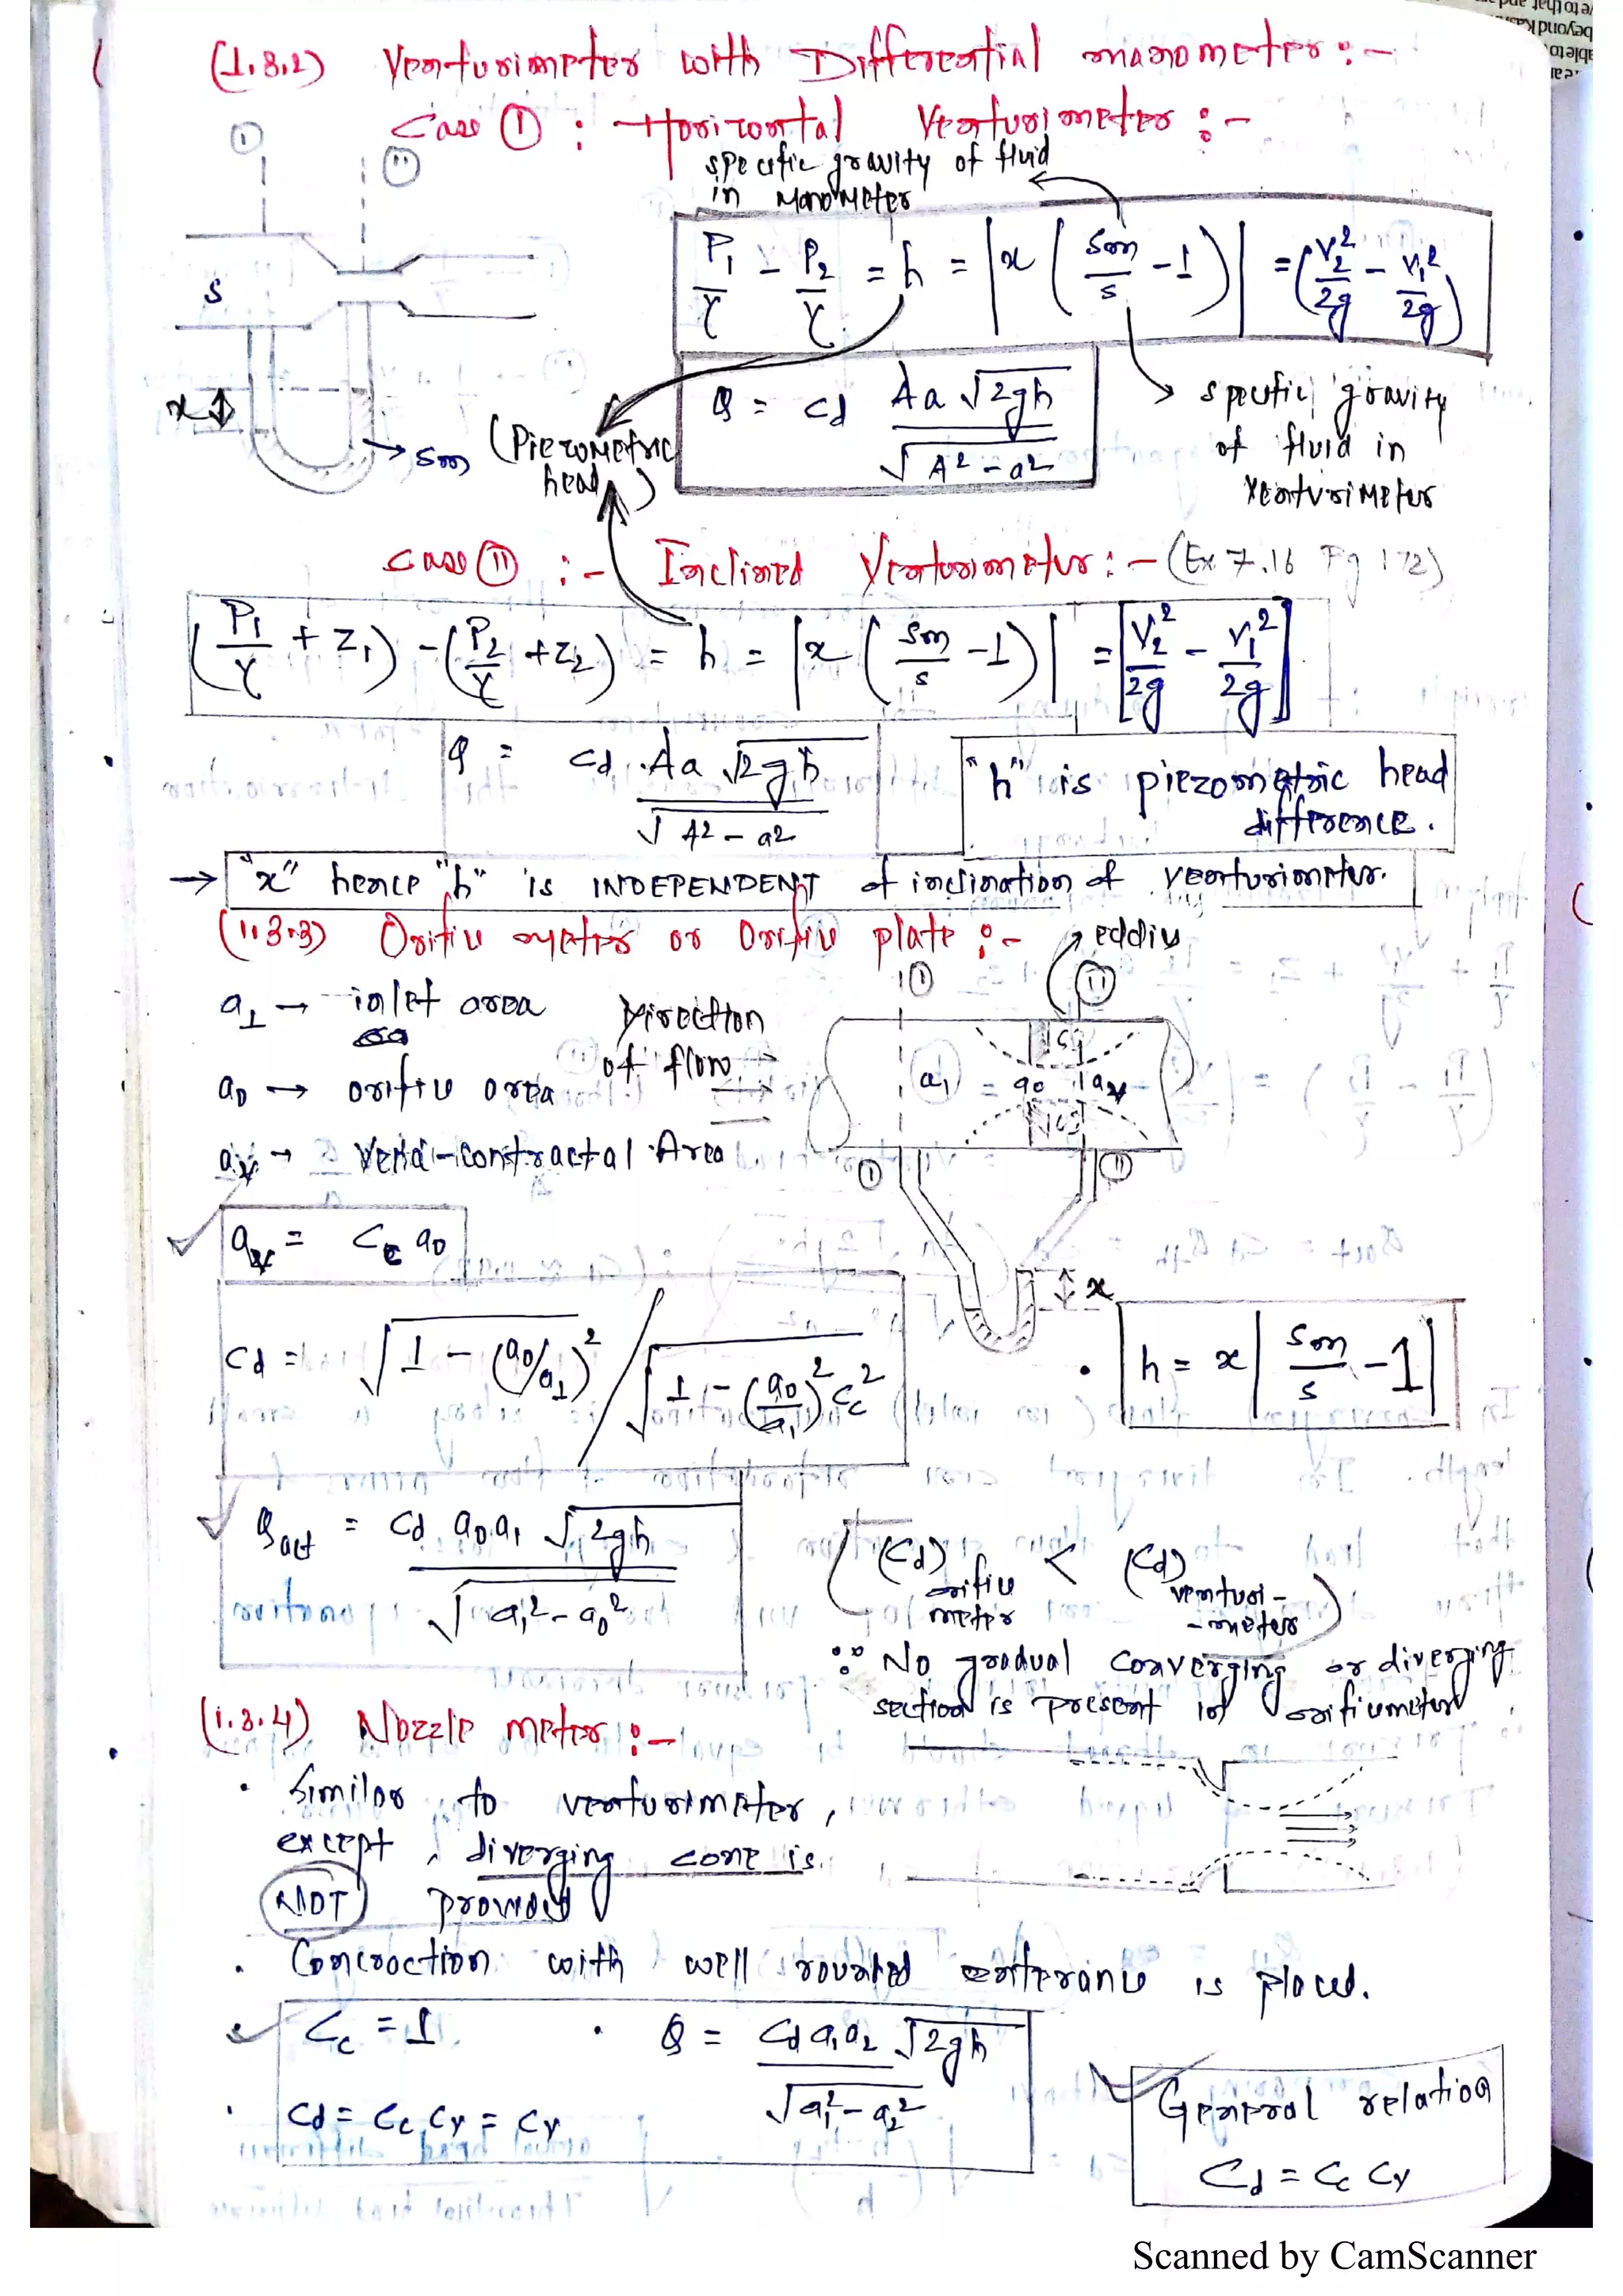 (1.3.2) Venturimeter with Differential manometer :-
Case (I) : Horizontal Venturimeter :-
(I)
(II)
specific gravity of fluid
in Manometer
P1/γ - P2/γ = h = |x (Sm/s - 1)| = (V2²/2g - V1²/2g)
S
x
Sm
(Piezometric
head)
Q = Cd Aa √2gh / √A² - a²
specific gravity
of fluid in
Venturimeter
Case (II) :- Inclined Venturimeter :- (Ex 7.16 Pg 172)
(P1/γ + Z1) - (P2/γ + Z2) = h = |x (Sm/s - 1)| = [V2²/2g - V1²/2g]
Q = Cd . Aa √2gh / √A² - a²
"h" is piezometric head
difference.
→ "x" hence "h" is INDEPENDENT of inclination of venturimeter.
(1.3.3) Orifice meter or Orifice plate :-
eddies
a1 → inlet area
Direction
of flow
(I)
(II)
a1
a0
av
a0 → orifice area
av → Vena-contractal Area
(I)
(II)
av = Cc a0
x
Cd = √1 - (a0/a1)² / √1 - (a0/a1)² Cc²
h = x | Sm/s - 1 |
Qact = Cd a0 a1 √2gh / √a1² - a0²
(Cd) orifice meter < (Cd) venturi-meter
∵ No gradual converging or diverging
section is present in orificemeter
(1.3.4) Nozzle meter :-
• Similar to venturimeter,
except, diverging cone is
NOT provided
• Concraction with well rounded enterance is placed.
Cc = 1
• Q = Cd a1 a2 √2gh / √a1² - a2²
• Cd = Cc Cv = Cv
General relation
Cd = Cc Cv
Scanned by CamScanner